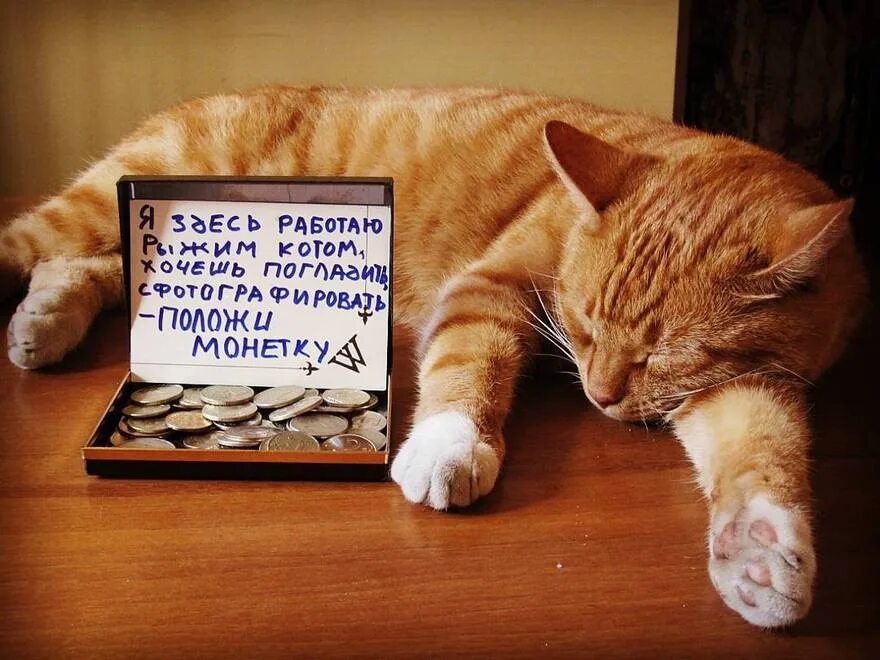 Я ЗДЕСЬ РАБОТАЮ
РЫЖИМ КОТОМ,
ХОЧЕШЬ ПОГЛАДИТЬ,
СФОТОГРАФИРОВАТЬ
-ПОЛОЖИ
МОНЕТКУ